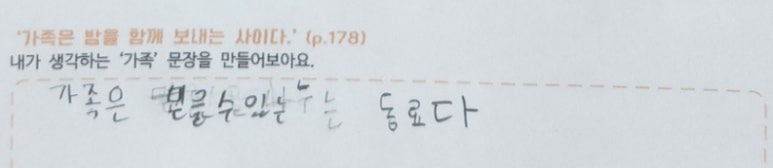 '가족은 밤을 함께 보내는 사이다.' (p.178)
내가 생각하는 '가족' 문장을 만들어보아요.
가족은 동료다